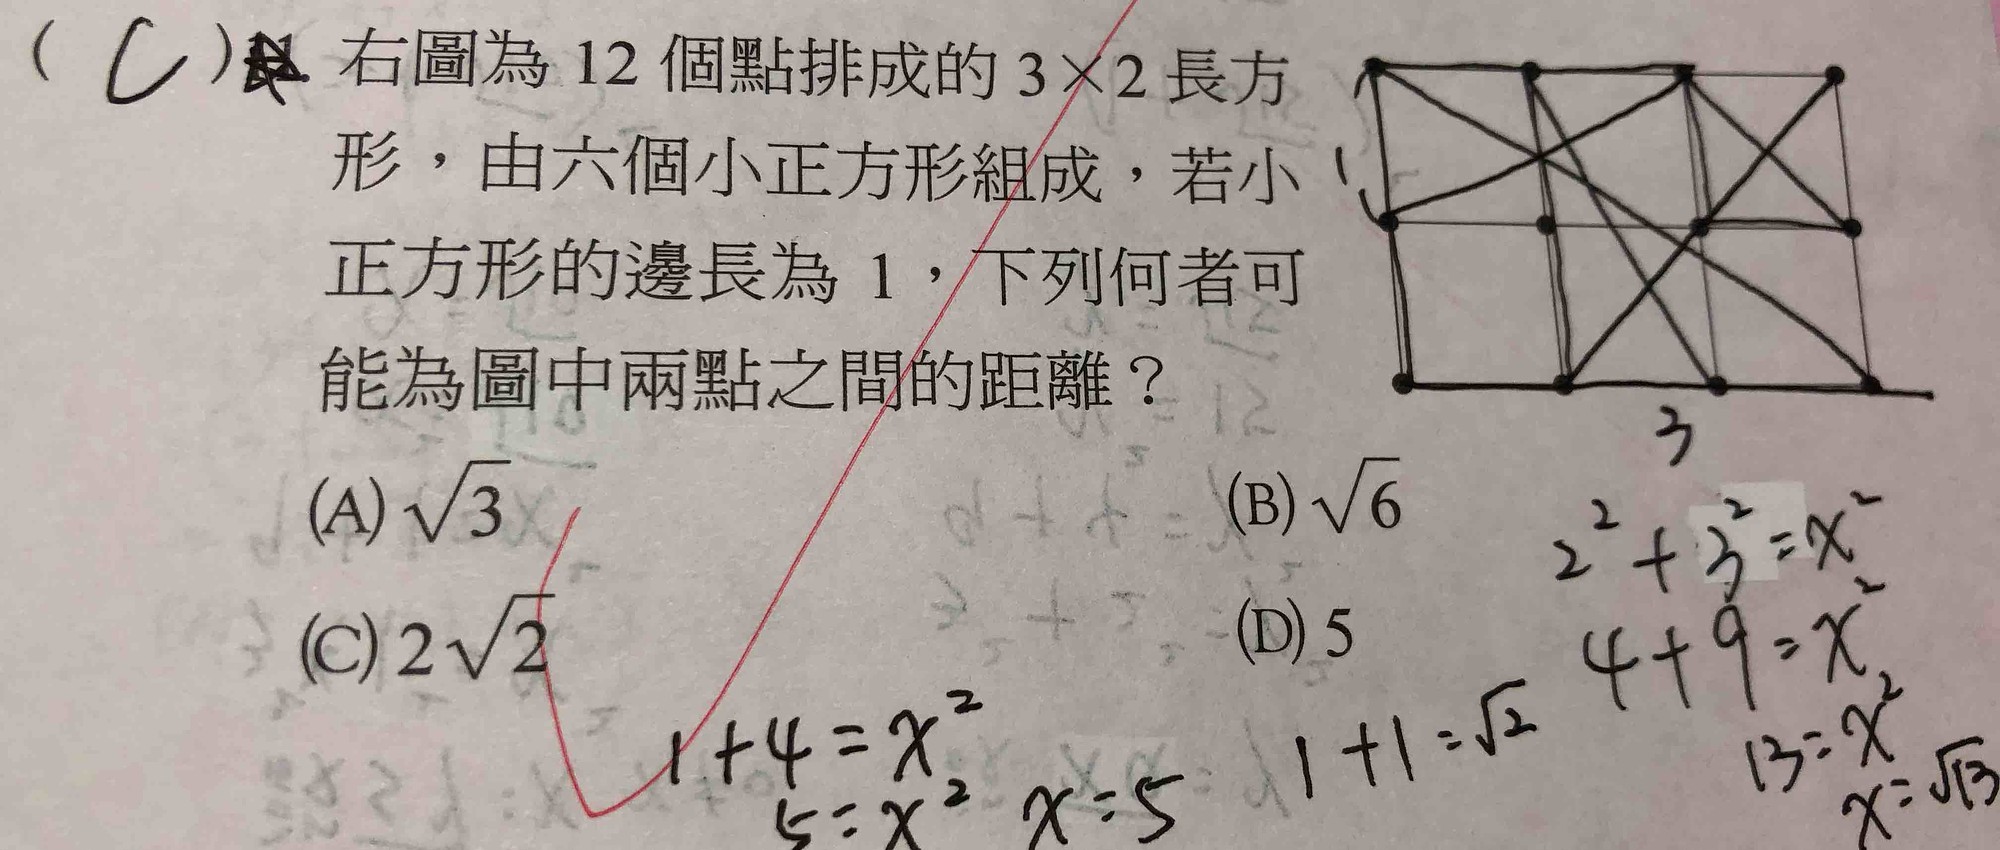 ( C ) 右圖為 12 個點排成的 3×2 長方
形，由六個小正方形組成，若小
正方形的邊長為 1，下列何者可
能為圖中兩點之間的距離？
(A) √3 (B) √6
(C) 2√2 (D) 5
1
3
2² + 3² = x²
4 + 9 = x²
13 = x²
x = √13
1 + 4 = x²
5 = x² x = 5
1 + 1 = √2